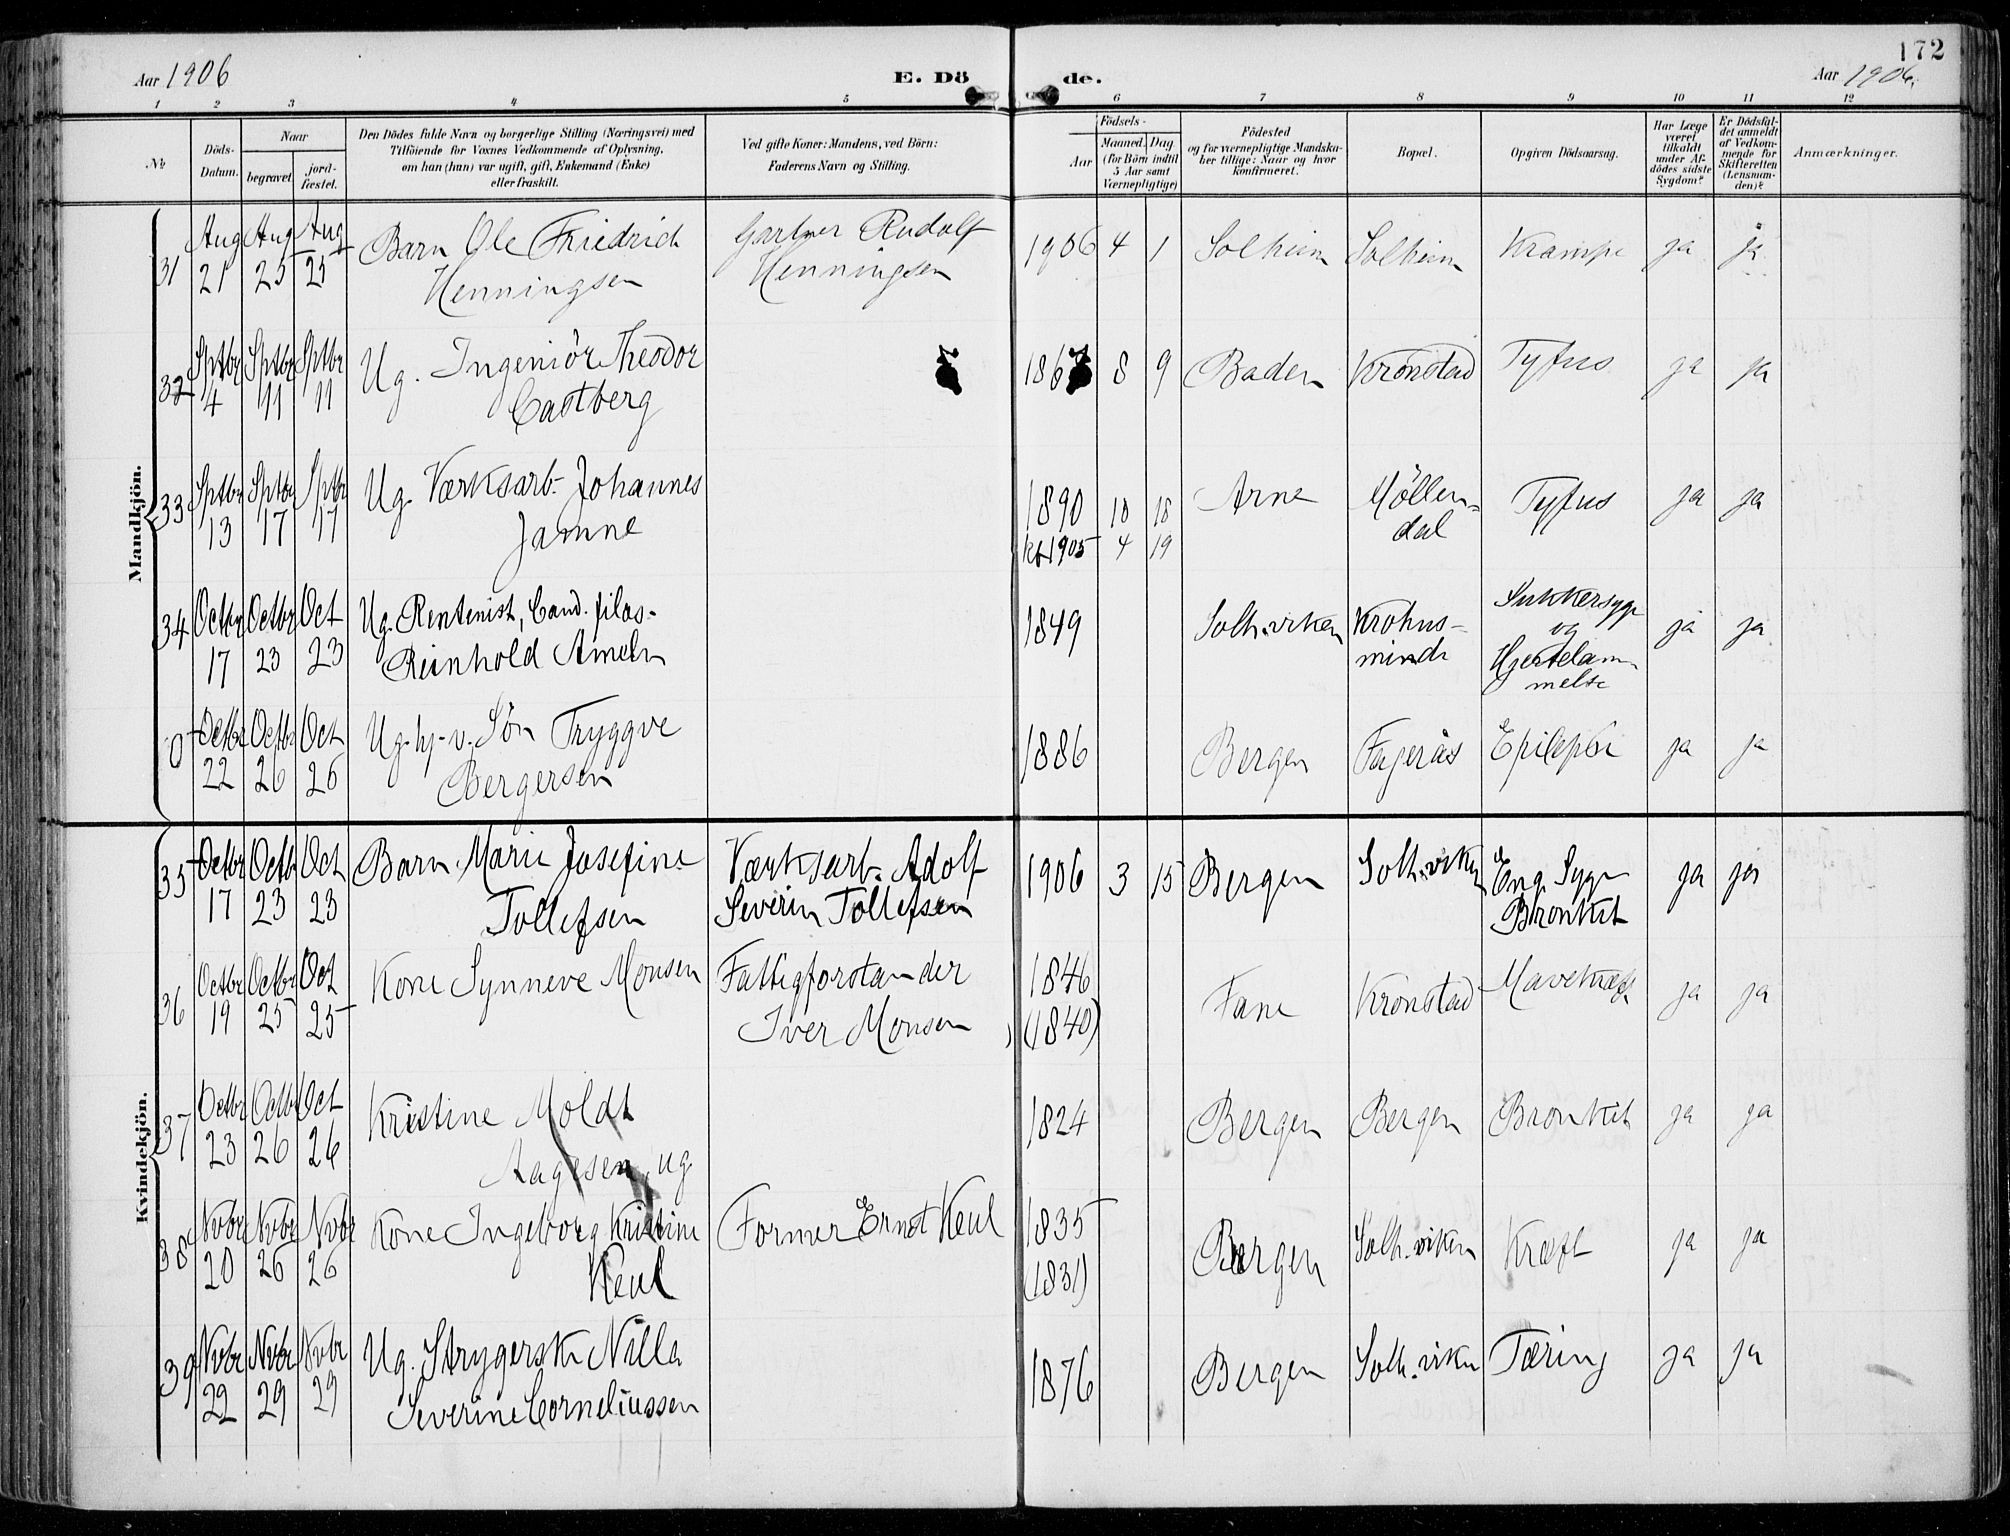 172
Aar 1906 E. Dö de. Aar 1906.
1 2 3 4 5 6 7 8 9 10 11 12
No. Döds-Datum. Naar begravet. jord-fæstet. Den Dödes fulde Navn og borgerlige Stilling (Næringsvei) med Tilföiende for Voxnes Vedkommende af Oplysning, om han (hun) var ugift, gift, Enkemand (Enke) eller fraskilt. Ved gifte Koner: Mandens, ved Börn: Faderens Navn og Stilling. Födsels- Aar Maaned. Dag (for Börn indtil 5 Aar samt Værnepligtige) Födested og for værnepligtige Mandskaber tillige: Naar og hvor konfirmeret. Bopæl. Opgiven Dödsaarsag. Har Læge været tilkaldt under Afdödes sidste Sygdom? Er Dödsfaldet anmeldt af Vedkommende for Skifteretten (Lensmanden)? Anmærkninger.
Mandkjön.
31 Aug 21 Aug 25 Aug 25 Barn Ole Friedrich Henningsen Gartner Rudolf Henningsen 1906 4 1 Solheim Solheim Krampe ja ja
32 Sptbr 4 Sptbr 11 Sptbr 11 Ug. Ingeniör Theodor Castberg 186 8 9 Baden Kronstad Tyfus ja ja
33 Sptbr 13 Sptbr 17 Sptbr 17 Ug. Værksarb. Johannes Jamne 1890 10 18 Arne Möllendal Tyfus ja ja
kf 1905 4 19
34 Octbr 17 Octbr 23 Oct 23 Ug. Rentenist, Cand. filos. Reinhold Ameln 1849 Solh.viken Krohnsminde Sukkersyge og Hjertelammelse ja ja
0 Octbr 22 Octbr 26 Oct 26 Ug. hj. v. Sön Tryggve Bergersen 1886 Bergen Fageräs Epilepsi ja ja
Kvindekjön.
35 Octbr 17 Octbr 23 Oct 23 Barn Marie Josefine Tollefsen Værksarb. Adolf Severin Tollefsen 1906 3 15 Bergen Solh.viken Eng. Syge Bronkit ja ja
36 Octbr 19 Octbr 25 Oct 25 Kone Synneve Monsen Fattigforstander Iver Monsen 1846 (1840) Fane Kronstad Mavekræft ja ja
37 Octbr 23 Octbr 26 Oct 26 Kristine Moldt Aagesen, ug 1824 Bergen Bergen Bronkit ja ja
38 Nvbr 20 Nvbr 26 Nvbr 26 Kone Ingeborg Kristine Keul Former Ernst Keul 1835 (1831) Bergen Solh.viken Kræft ja ja
39 Nvbr 22 Nvbr 29 Nvbr 29 Ug. Strygerske Nilla Severine Corneliussen 1876 Bergen Solh.viken Tæring ja ja